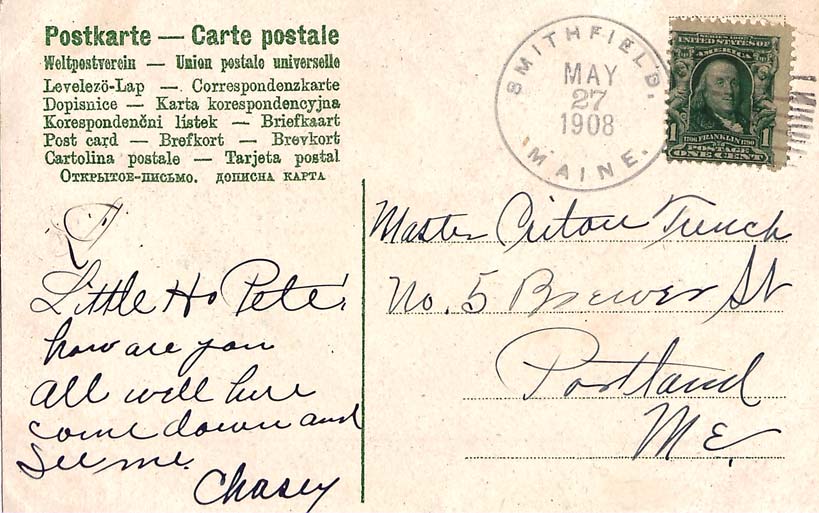 Postkarte — Carte postale
Weltpostverein — Union postale universelle
Levelező-Lap — Correspondenzkarte
Dopisnice — Karta korespondencyjna
Korespondenčni listek — Briefkaart
Post card — Brefkort — Brevkort
Cartolina postale — Tarjeta postal
Открытое-письмо. дописна карта
SMITHFIELD, MAINE.
MAY
27
1908
SERIES 1902
UNITED STATES OF
AMERICA
1706 FRANKLIN 1790
1 POSTAGE 1
ONE CENT
Little Ho Pete'
how are you
all well here
come down and
see me.
Chasey
Master French
No. 5 Brewer St
Portland
Me.